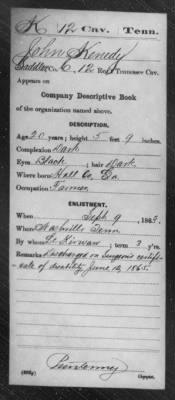 K 12 Cav. Tenn.
John Kenedy
Saddler Co. C, 12 Reg't Tennessee Cav.
Appears on
Company Descriptive Book
of the organization named above.
DESCRIPTION.
Age 20 years; height 5 feet 9 inches.
Complexion Dark
Eyes Black; hair Dark
Where born Hall Co, Ga.
Occupation Farmer
ENLISTMENT.
When Sept 9, 1863.
Where Nashville Tenn
By whom Lt Kirwan; term 3 y'rs.
Remarks Discharged on Surgeons certifi-
cate of disability June 12, 1865.
Copyist.